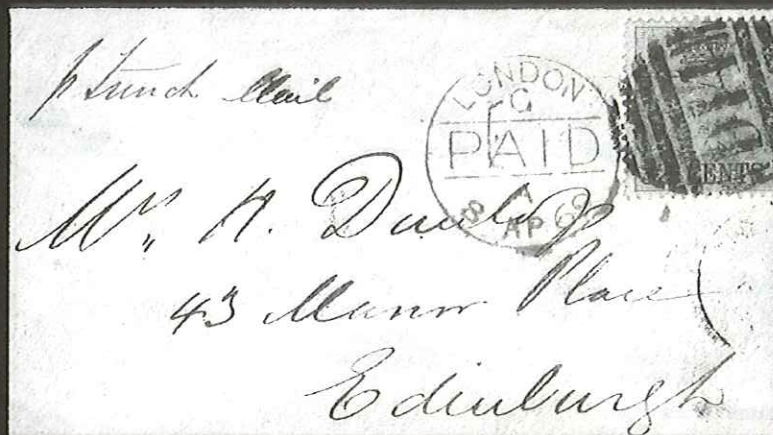 p French Mail
LONDON
PAID
8 AP 69
CENTS
Mrs. H. Dunlop
43 Manor Place
Edinburgh